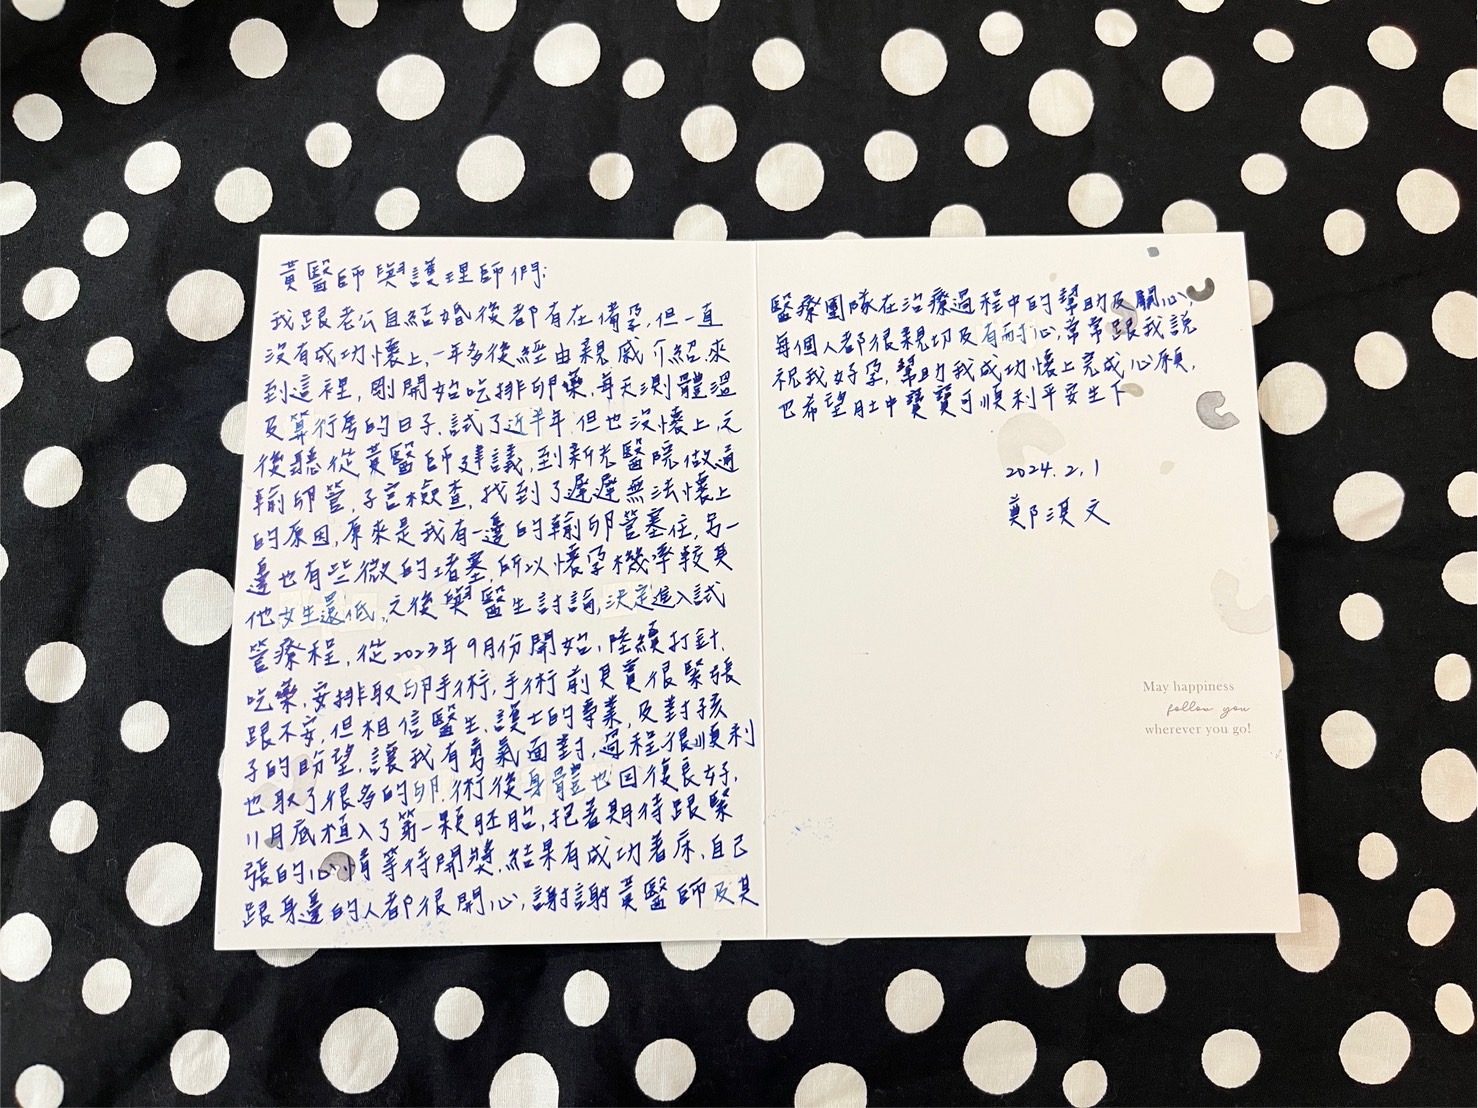 黃醫師與護理師們:
我跟老公自結婚後都有在備孕,但一直
沒有成功懷上,一年多後經由親戚介紹來
到這裡,剛開始吃排卵藥,每天測體溫
及算行房的日子,試了近半年,但也沒懷上,之
後聽從黃醫師建議,到新光醫院做通
輸卵管,子宮檢查,找到了遲遲無法懷上
的原因,原來是我有一邊的輸卵管塞住,另一
邊也有些微的堵塞,所以懷孕機率較其
他女生還低,之後與醫生討論,決定進入試
管療程,從2023年9月份開始,陸續打針,
吃藥,安排取卵手術,手術前其實很緊張
跟不安,但相信醫生、護士的專業,及對孩
子的盼望,讓我有勇氣面對,過程很順利
也取了很多的卵,術後身體也回復良好,
11月底植入了第一顆胚胎,抱著期待跟緊
張的心情等待開獎,結果有成功著床,自己
跟身邊的人都很開心,謝謝黃醫師及其
醫療團隊在治療過程中的幫助及關心,
每個人都很親切及有耐心,常常跟我說
祝我好孕,幫助我成功懷上完成心願,
也希望肚中寶寶可順利平安生下
2024.2.1
鄭淇文
May happiness
follow you
wherever you go!